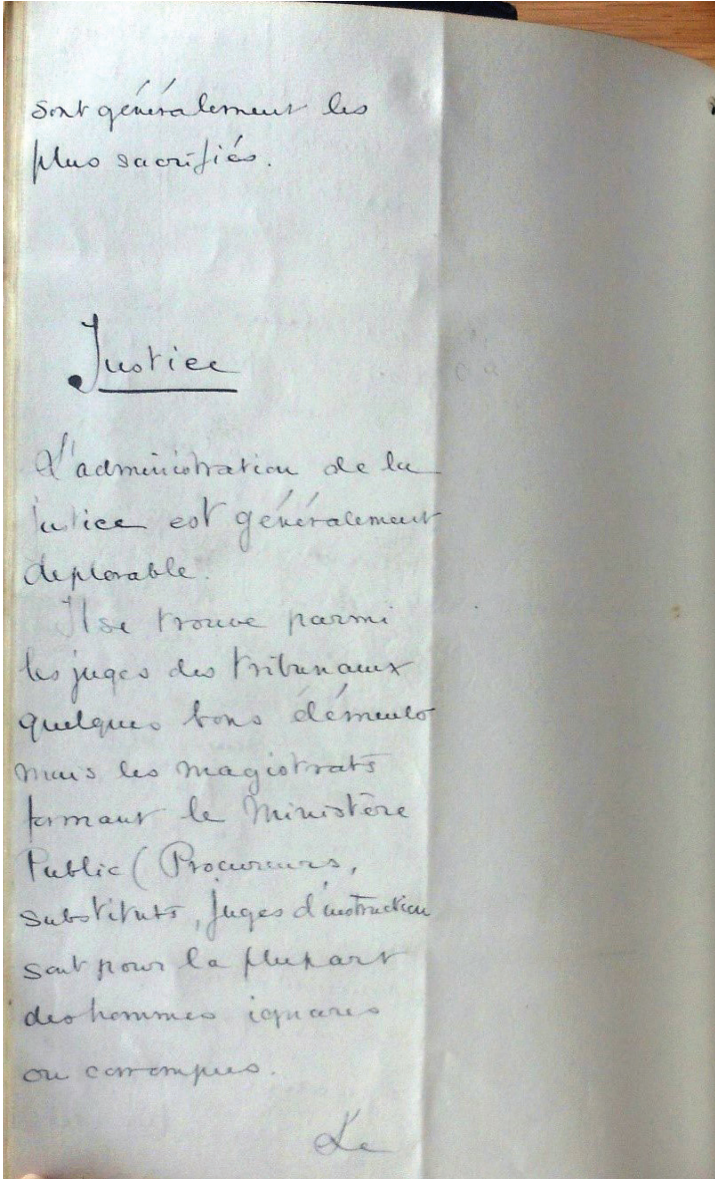 sont généralement les
plus sacrifiés.
Justice
L'administration de la
justice est généralement
deplorable.
Il se trouve parmi
les juges des tribunaux
quelques bons éléments
mais les magistrats
formant le Ministère
Public (Procureurs,
substituts, juges d'instruction
sont pour la plupart
des hommes ignares
ou corrompus.
Le